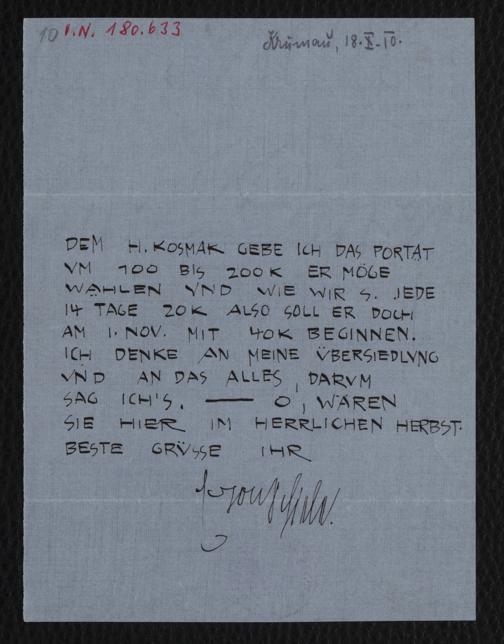 10 I.N. 180.633
Krumau, 18.X.10.
DEM H. KOSMAK GEBE ICH DAS PORTÄT
VM 100 BIS 200 K ER MÖGE
WÄHLEN VND WIE WIR S. JEDE
14 TAGE 20K ALSO SOLL ER DOCH
AM 1. NOV. MIT 40K BEGINNEN.
ICH DENKE AN MEINE ÜBERSIEDLVNG
VND AN DAS ALLES, DARVM
SAG ICH'S. — O, WÄREN
SIE HIER IM HERRLICHEN HERBST.
BESTE GRÜSSE IHR